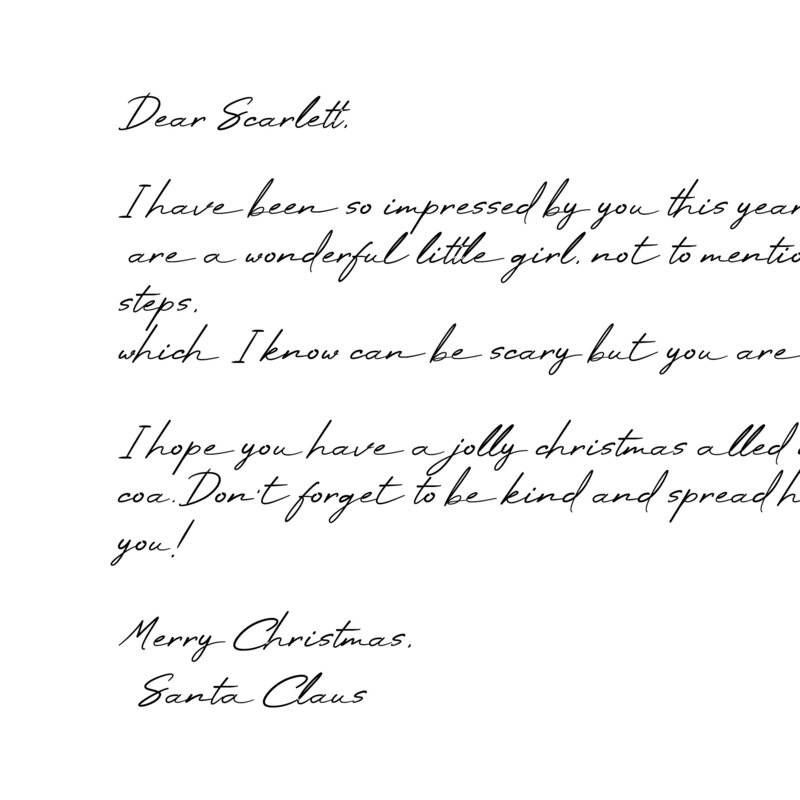 Dear Scarlett,
I have been so impressed by you this year
are a wonderful little girl, not to mentio
steps,
which I know can be scary but you are
I hope you have a jolly christmas alled
coa. Don't forget to be kind and spread h
you!
Merry Christmas,
Santa Claus